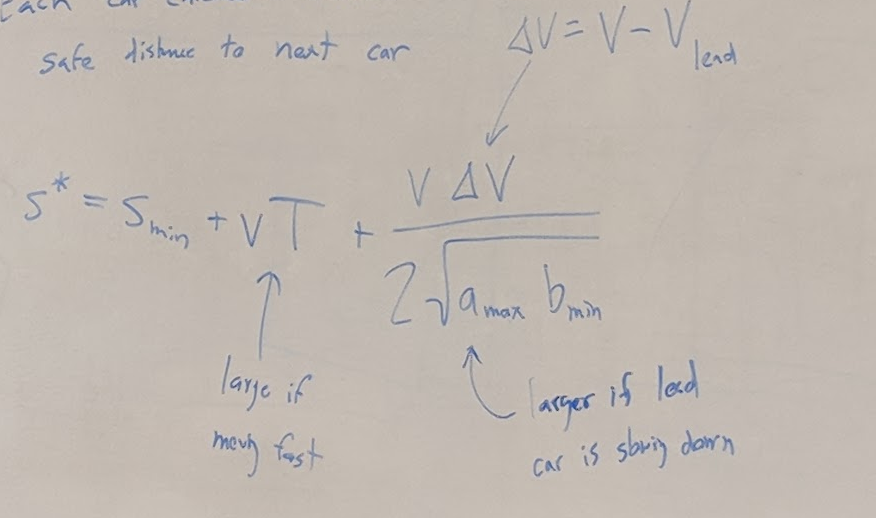 Each car
safe distance to next car
ΔV = V - V_lead
s* = s_min + vT + \frac{V ΔV}{2\sqrt{a_max b_min}}
large if
moving fast
larger if lead
car is slowing down